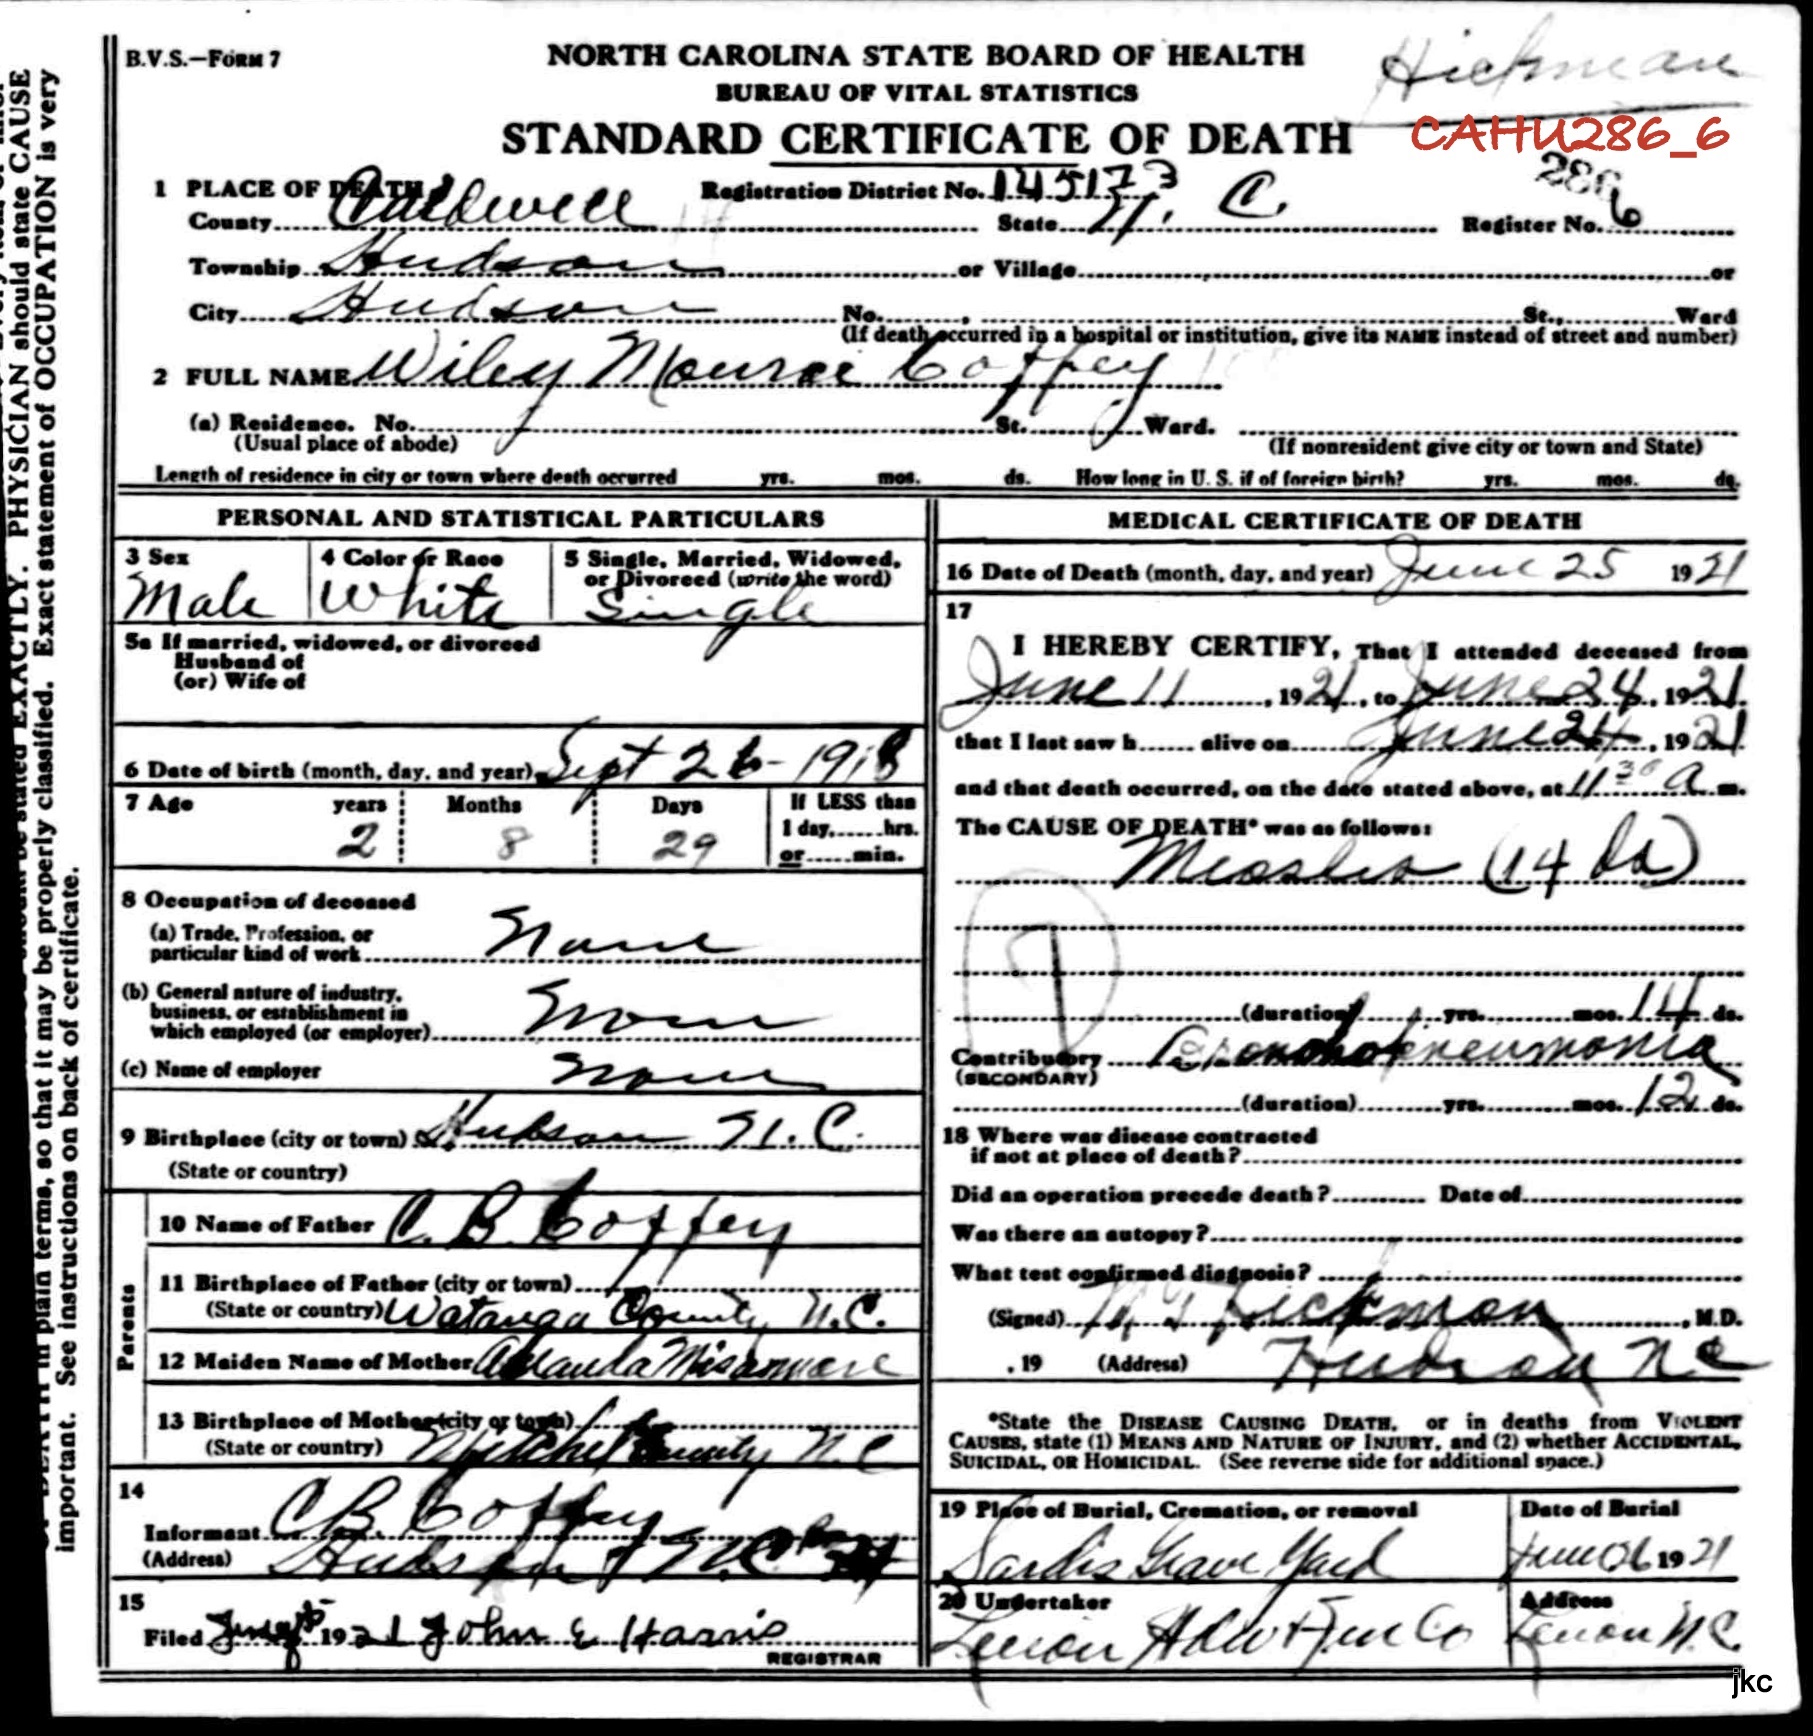 Hickman
B.V.S.—FORM 7
NORTH CAROLINA STATE BOARD OF HEALTH
BUREAU OF VITAL STATISTICS
STANDARD CERTIFICATE OF DEATH
CAHU286_6
286
1 PLACE OF DEATH Registration District No. 145173
County Caldwell State N. C. Register No. 6
Township Hudson or Village or
City Hudson No. , St., Ward
(If death occurred in a hospital or institution, give its NAME instead of street and number)
2 FULL NAME Wiley Monroe Coffey
(a) Residence. No. St. Ward.
(Usual place of abode) (If nonresident give city or town and State)
Length of residence in city or town where death occurred yrs. mos. ds. How long in U. S. if of foreign birth? yrs. mos. ds.
PERSONAL AND STATISTICAL PARTICULARS
3 Sex 4 Color or Race 5 Single, Married, Widowed,
or Divorced (write the word)
Male White Single
5a If married, widowed, or divorced
Husband of
(or) Wife of
6 Date of birth (month, day, and year) Sept 26-1918
7 Age years Months Days If LESS than
1 day, hrs.
2 8 29 or min.
8 Occupation of deceased
(a) Trade, Profession, or
particular kind of work None
(b) General nature of industry,
business, or establishment in
which employed (or employer) None
(c) Name of employer None
9 Birthplace (city or town) Hudson N. C.
(State or country)
Parents
10 Name of Father C. B. Coffey
11 Birthplace of Father (city or town)
(State or country) Watauga County N.C.
12 Maiden Name of Mother
13 Birthplace of Mother (city or town)
(State or country) Mitchel County N. C
14
Informant C B Coffey
(Address) Hudson N.C.
15
Filed 1921 John E Harris
REGISTRAR
MEDICAL CERTIFICATE OF DEATH
16 Date of Death (month, day, and year) June 25 1921
17
I HEREBY CERTIFY, That I attended deceased from
June 11, 1921, to June 24, 1921
that I last saw h alive on June 24, 1921
and that death occurred, on the date stated above, at 11 30 A m.
The CAUSE OF DEATH* was as follows:
Measles (14 da)
(duration) yrs. mos. 14 ds.
Contributory Bronchopneumonia
(SECONDARY)
(duration) yrs. mos. 12 ds.
18 Where was disease contracted
if not at place of death?
Did an operation precede death? Date of
Was there an autopsy?
What test confirmed diagnosis?
(Signed) Hickman, M.D.
, 19 (Address) Hudson N C
*State the DISEASE CAUSING DEATH, or in deaths from VIOLENT
CAUSES, state (1) MEANS AND NATURE OF INJURY, and (2) whether ACCIDENTAL,
SUICIDAL, OR HOMICIDAL. (See reverse side for additional space.)
19 Place of Burial, Cremation, or removal Date of Burial
Sardis Grave Yard June 26 1921
20 Undertaker Address
Lenoir Hdw & Fur Co Lenoir N.C.
stated EXACTLY. PHYSICIAN should state CAUSE
in plain terms, so that it may be properly classified. Exact statement of OCCUPATION is very
important. See instructions on back of certificate.
jkc